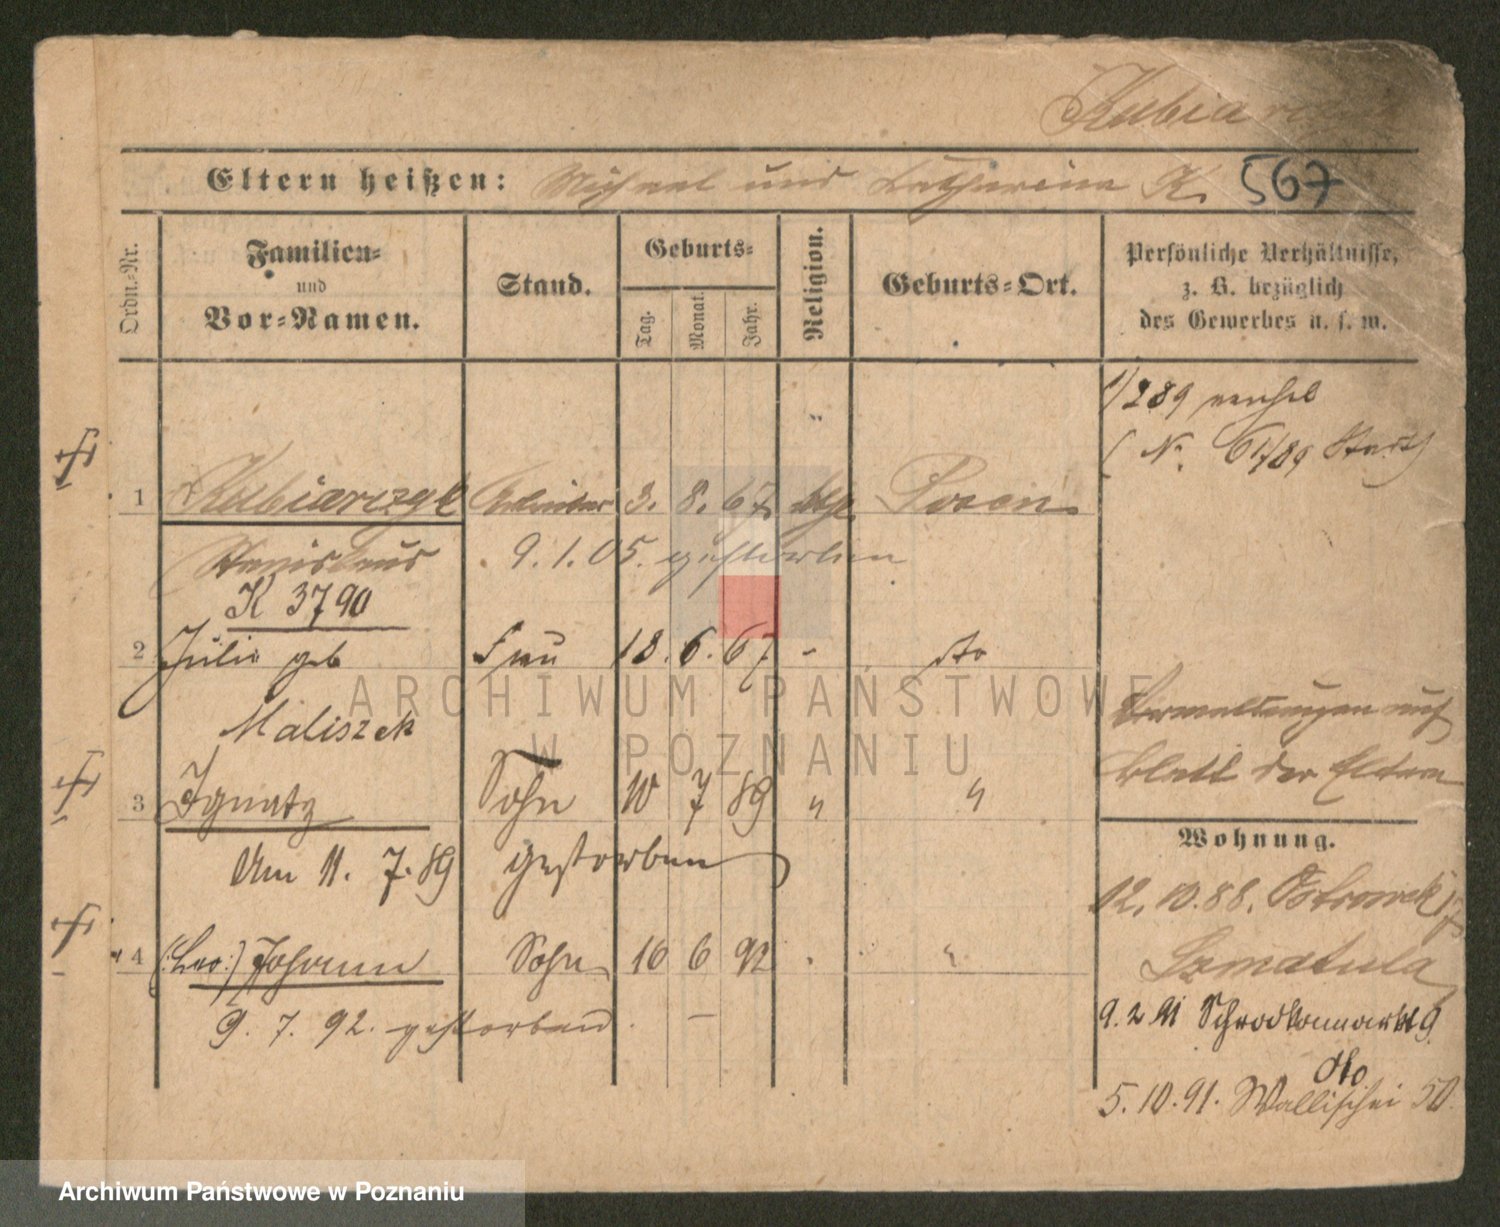 Kubia
Eltern heißen: Michael und Catharina K. 567
Ordn.-Nr.
Familien-
und
Vor-Namen.
Stand.
Geburts-
Tag.
Monat.
Jahr.
Religion.
Geburts-Ort.
Persönliche Verhältnisse,
z. B. bezüglich
des Gewerbes u. s. w.
1/289
(N. 61/89
1 Kubiarczyk Arbeiter 3. 8. 67. kth. Posen
Stanislaus 9. 1. 05. gestorben
K 3790
2 Julie geb Frau 18. 6. 67 - dto
Maliszek
auf
Blatt der Eltern
3 Ignatz Sohn 10 7 89 " "
Am 11. 7. 89 gestorben
Wohnung.
12. 10. 88. Ostrowek 17
Szmatula
4 (:Leo:) Johann Sohn 16 6 92 . "
9. 7. 92. gestorben. —
9. 2 91 Schrodkaumarkt 9
dto
5. 10. 91. Wallischei 50.
ARCHIWUM PAŃSTWOWE
W POZNANIU
Archiwum Państwowe w Poznaniu